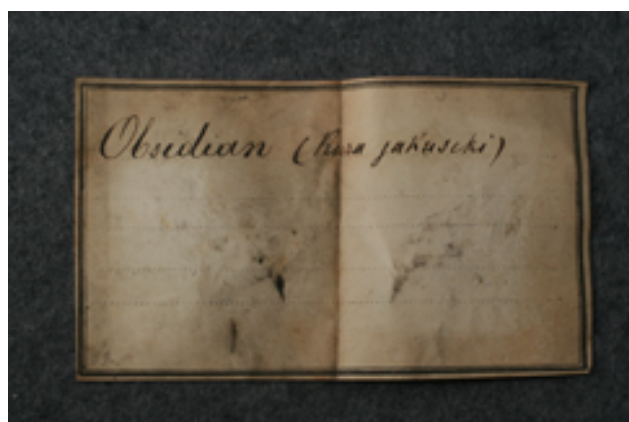 Obsidian (Kura jakuseki)